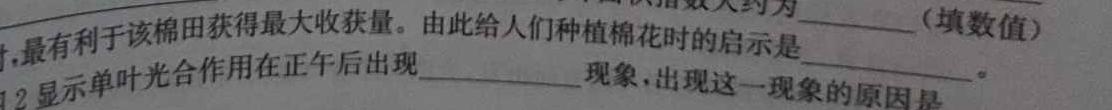 指数大约为________（填数值）
,最有利于该棉田获得最大收获量。由此给人们种植棉花时的启示是________。
2显示单叶光合作用在正午后出现________现象,出现这一现象的原因是